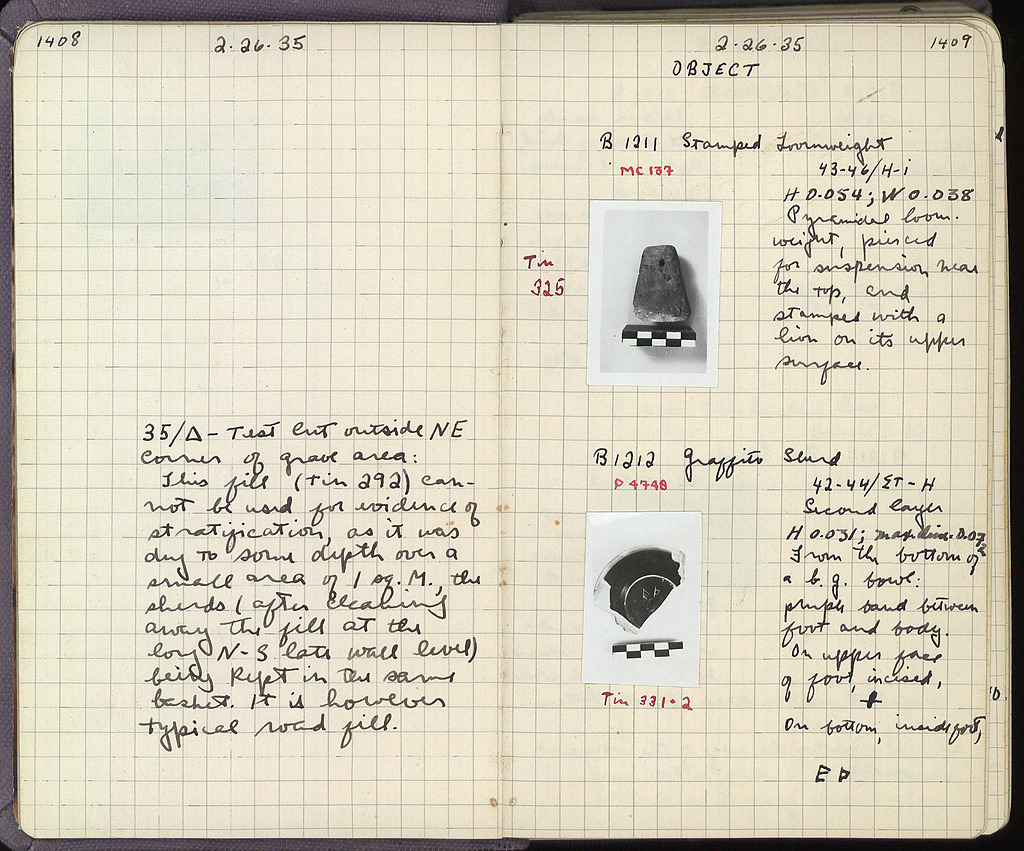 1408
2·26·35
35/Δ - Test Cut outside NE
corner of grave area:
This fill (Tin 292) can-
not be used for evidence of
stratification, as it was
dug to some depth over a
small area of 1 sq. M., the
sherds (after cleaning
away the fill at the
long N-S late wall level)
being kept in the same
basket. It is however
typical road fill.
2·26·35
1409
OBJECT
B 1211 Stamped Loomweight
MC 137
43-46/H-i
H 0.054; W 0.038
Pyramidal loom-
weight, pierced
for suspension near
the top, and
stamped with a
lion on its upper
surface.
Tin
325
B 1212 Graffito Sherd
P 4748
42-44/ΣΤ-H
Second layer
H 0.031; max dim. 0.072
From the bottom of
a b.g. bowl:
purple band between
foot and body.
On upper face
of foot, incised,
On bottom, inside foot,
Tin 331·2